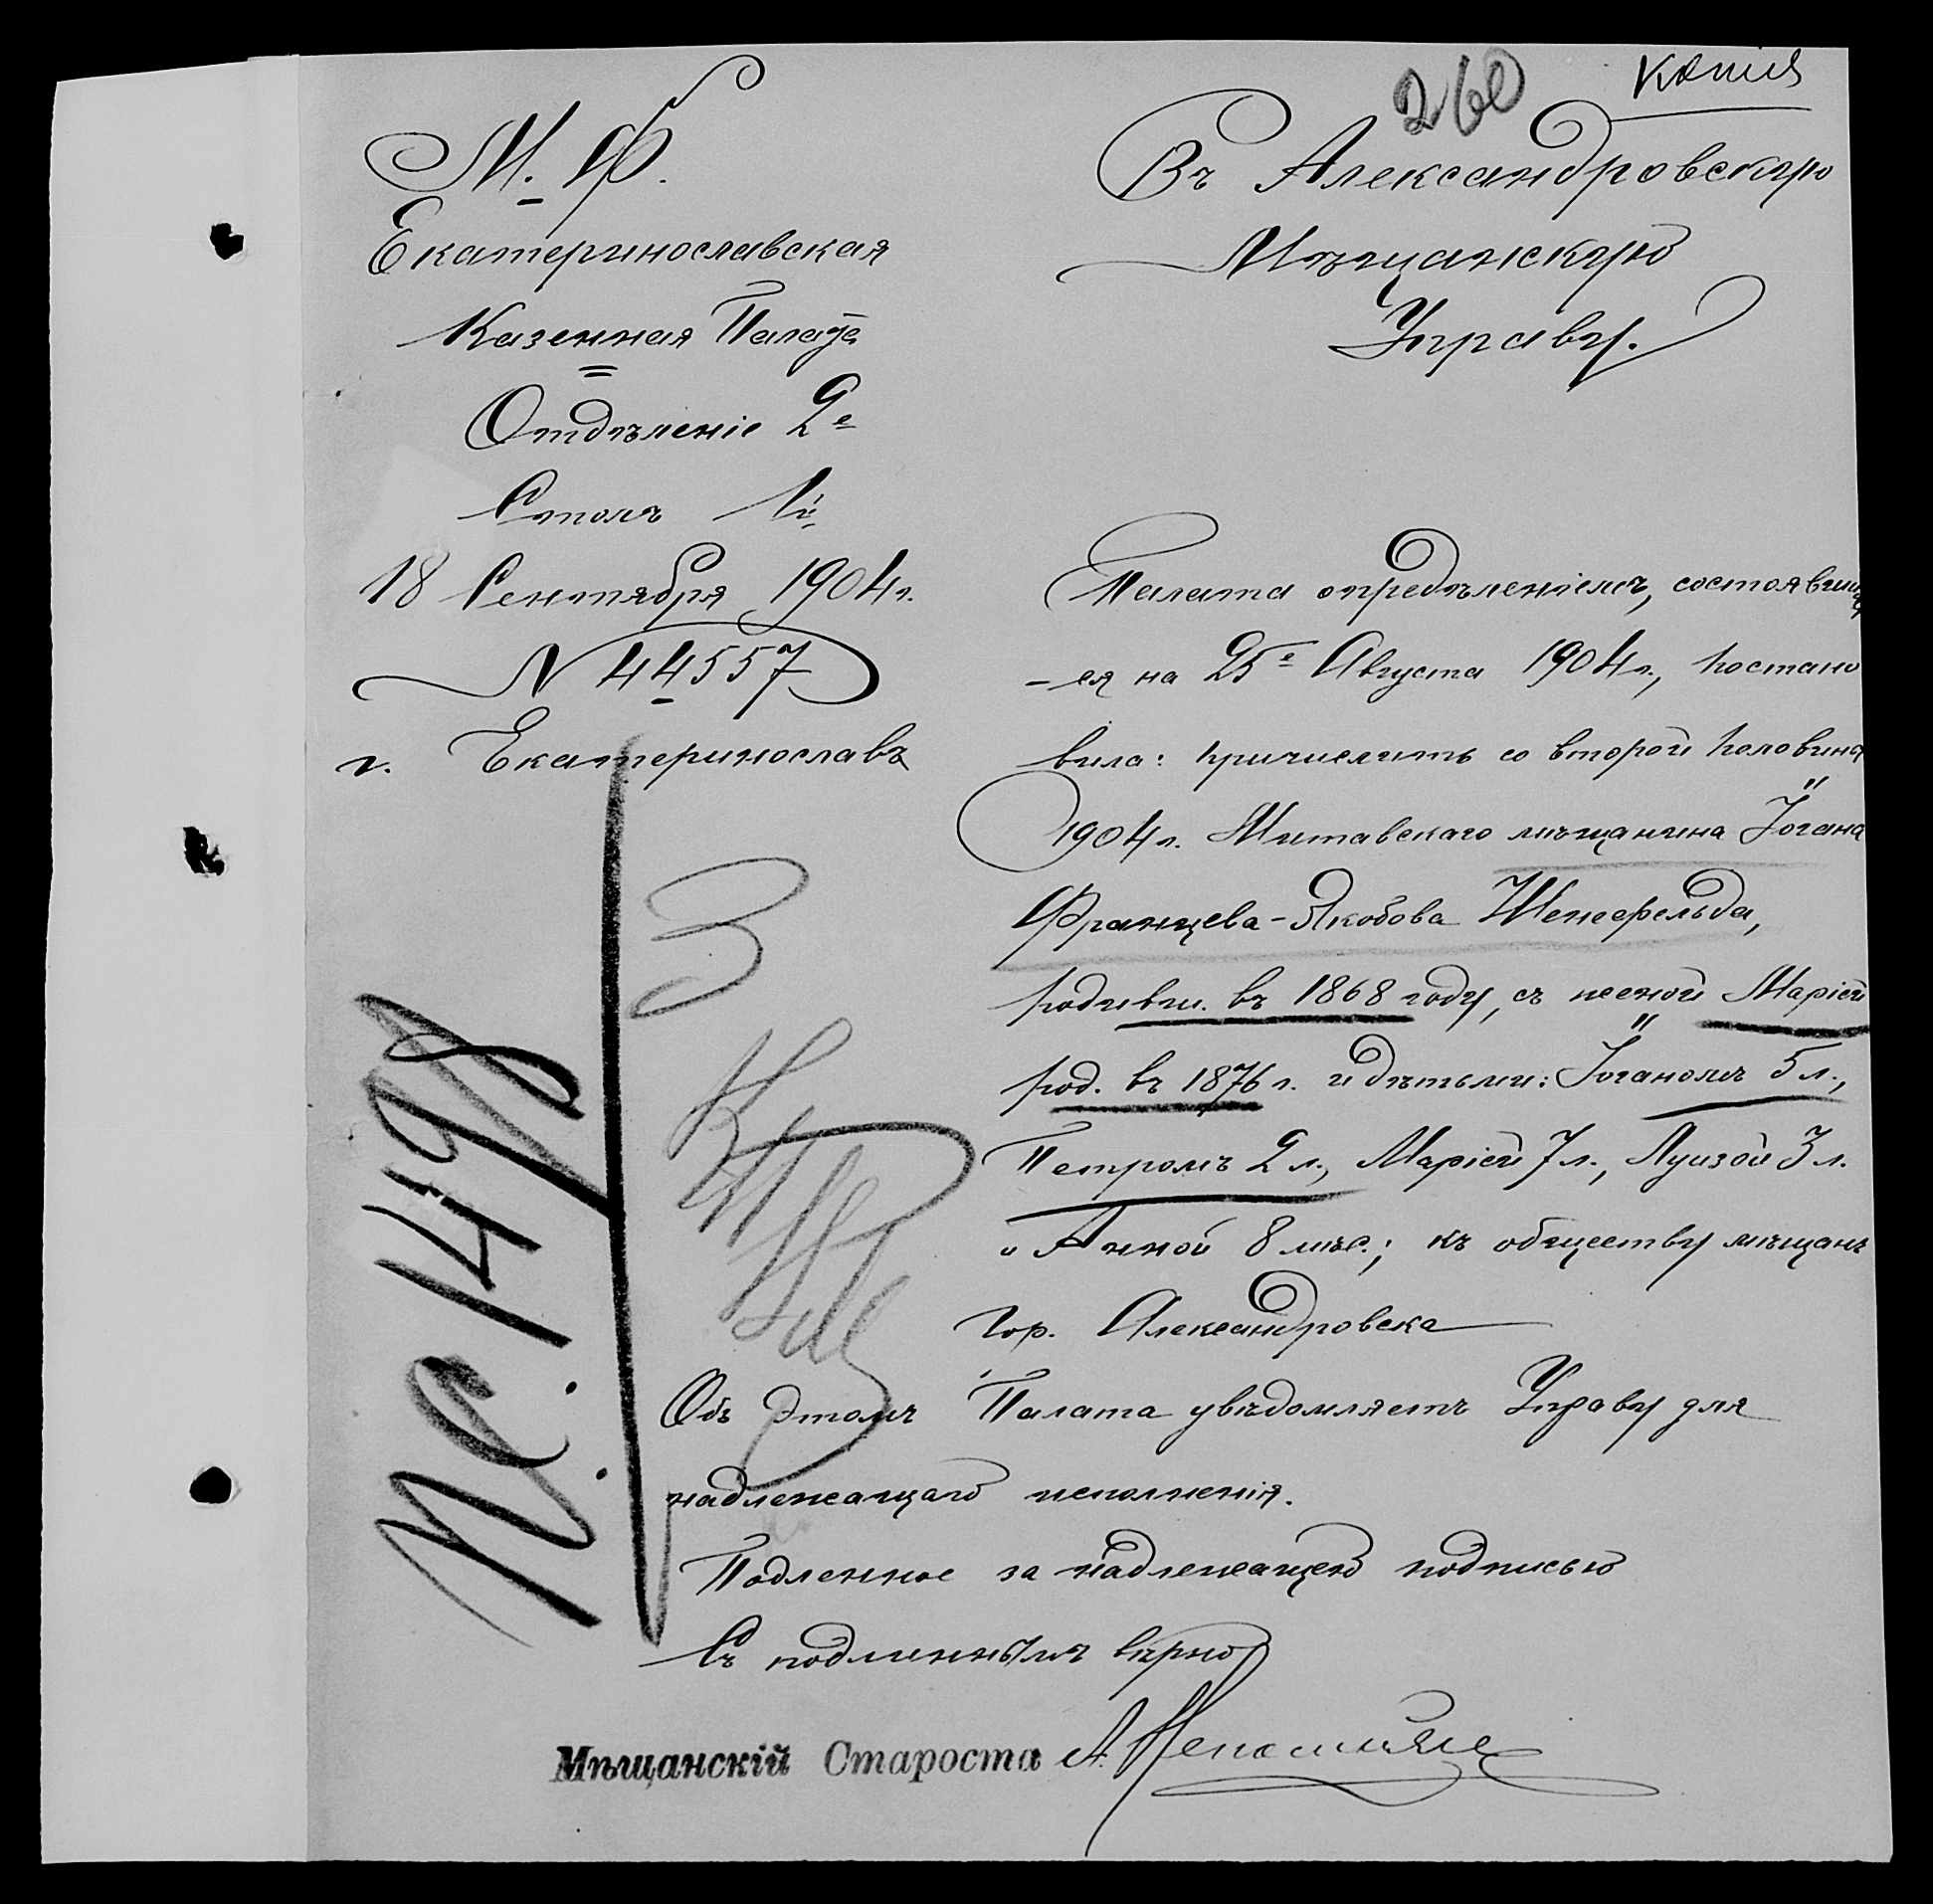 260
Копія
М. Ф.
Екатеринославская
Казенная Палата
Отдѣленіе 2е
Столъ 1й
18 Сентября 1904 г.
N 44557
г. Екатеринославъ
Въ Александровскую
Мѣщанскую
Управу.
Палата опредѣленіемъ, состоявши
-ся на 25е Августа 1904 г., постано
вила: причислить со второй половины
1904 г. Митавскаго мѣщанина Іогана
Францева-Якобова Шенфельда,
родивш. въ 1868 году, съ женой Маріей
род. въ 1876 г. и дѣтьми: Іоганомъ 5 л.,
Петромъ 2 л., Маріей 7 л., Луизой 3 л.
и Анной 8 мѣс.; къ обществу мѣщанъ
гор. Александровска
Объ этомъ Палата увѣдомляетъ Управу для
надлежащаго исполненія.
Подленное за надлежащею подписью
Съ подлиннымъ вѣрно
Мѣщанскій Староста А.